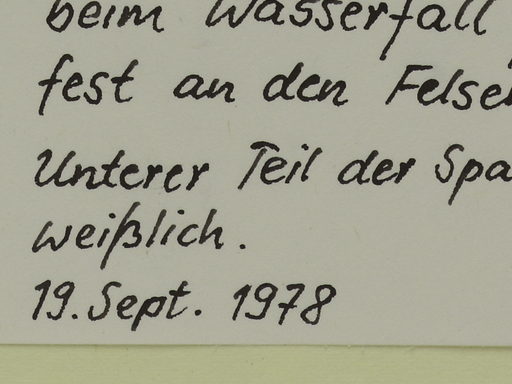 beim Wasserfall
fest an den Felse
Unterer Teil der Spa
weißlich.
19. Sept. 1978